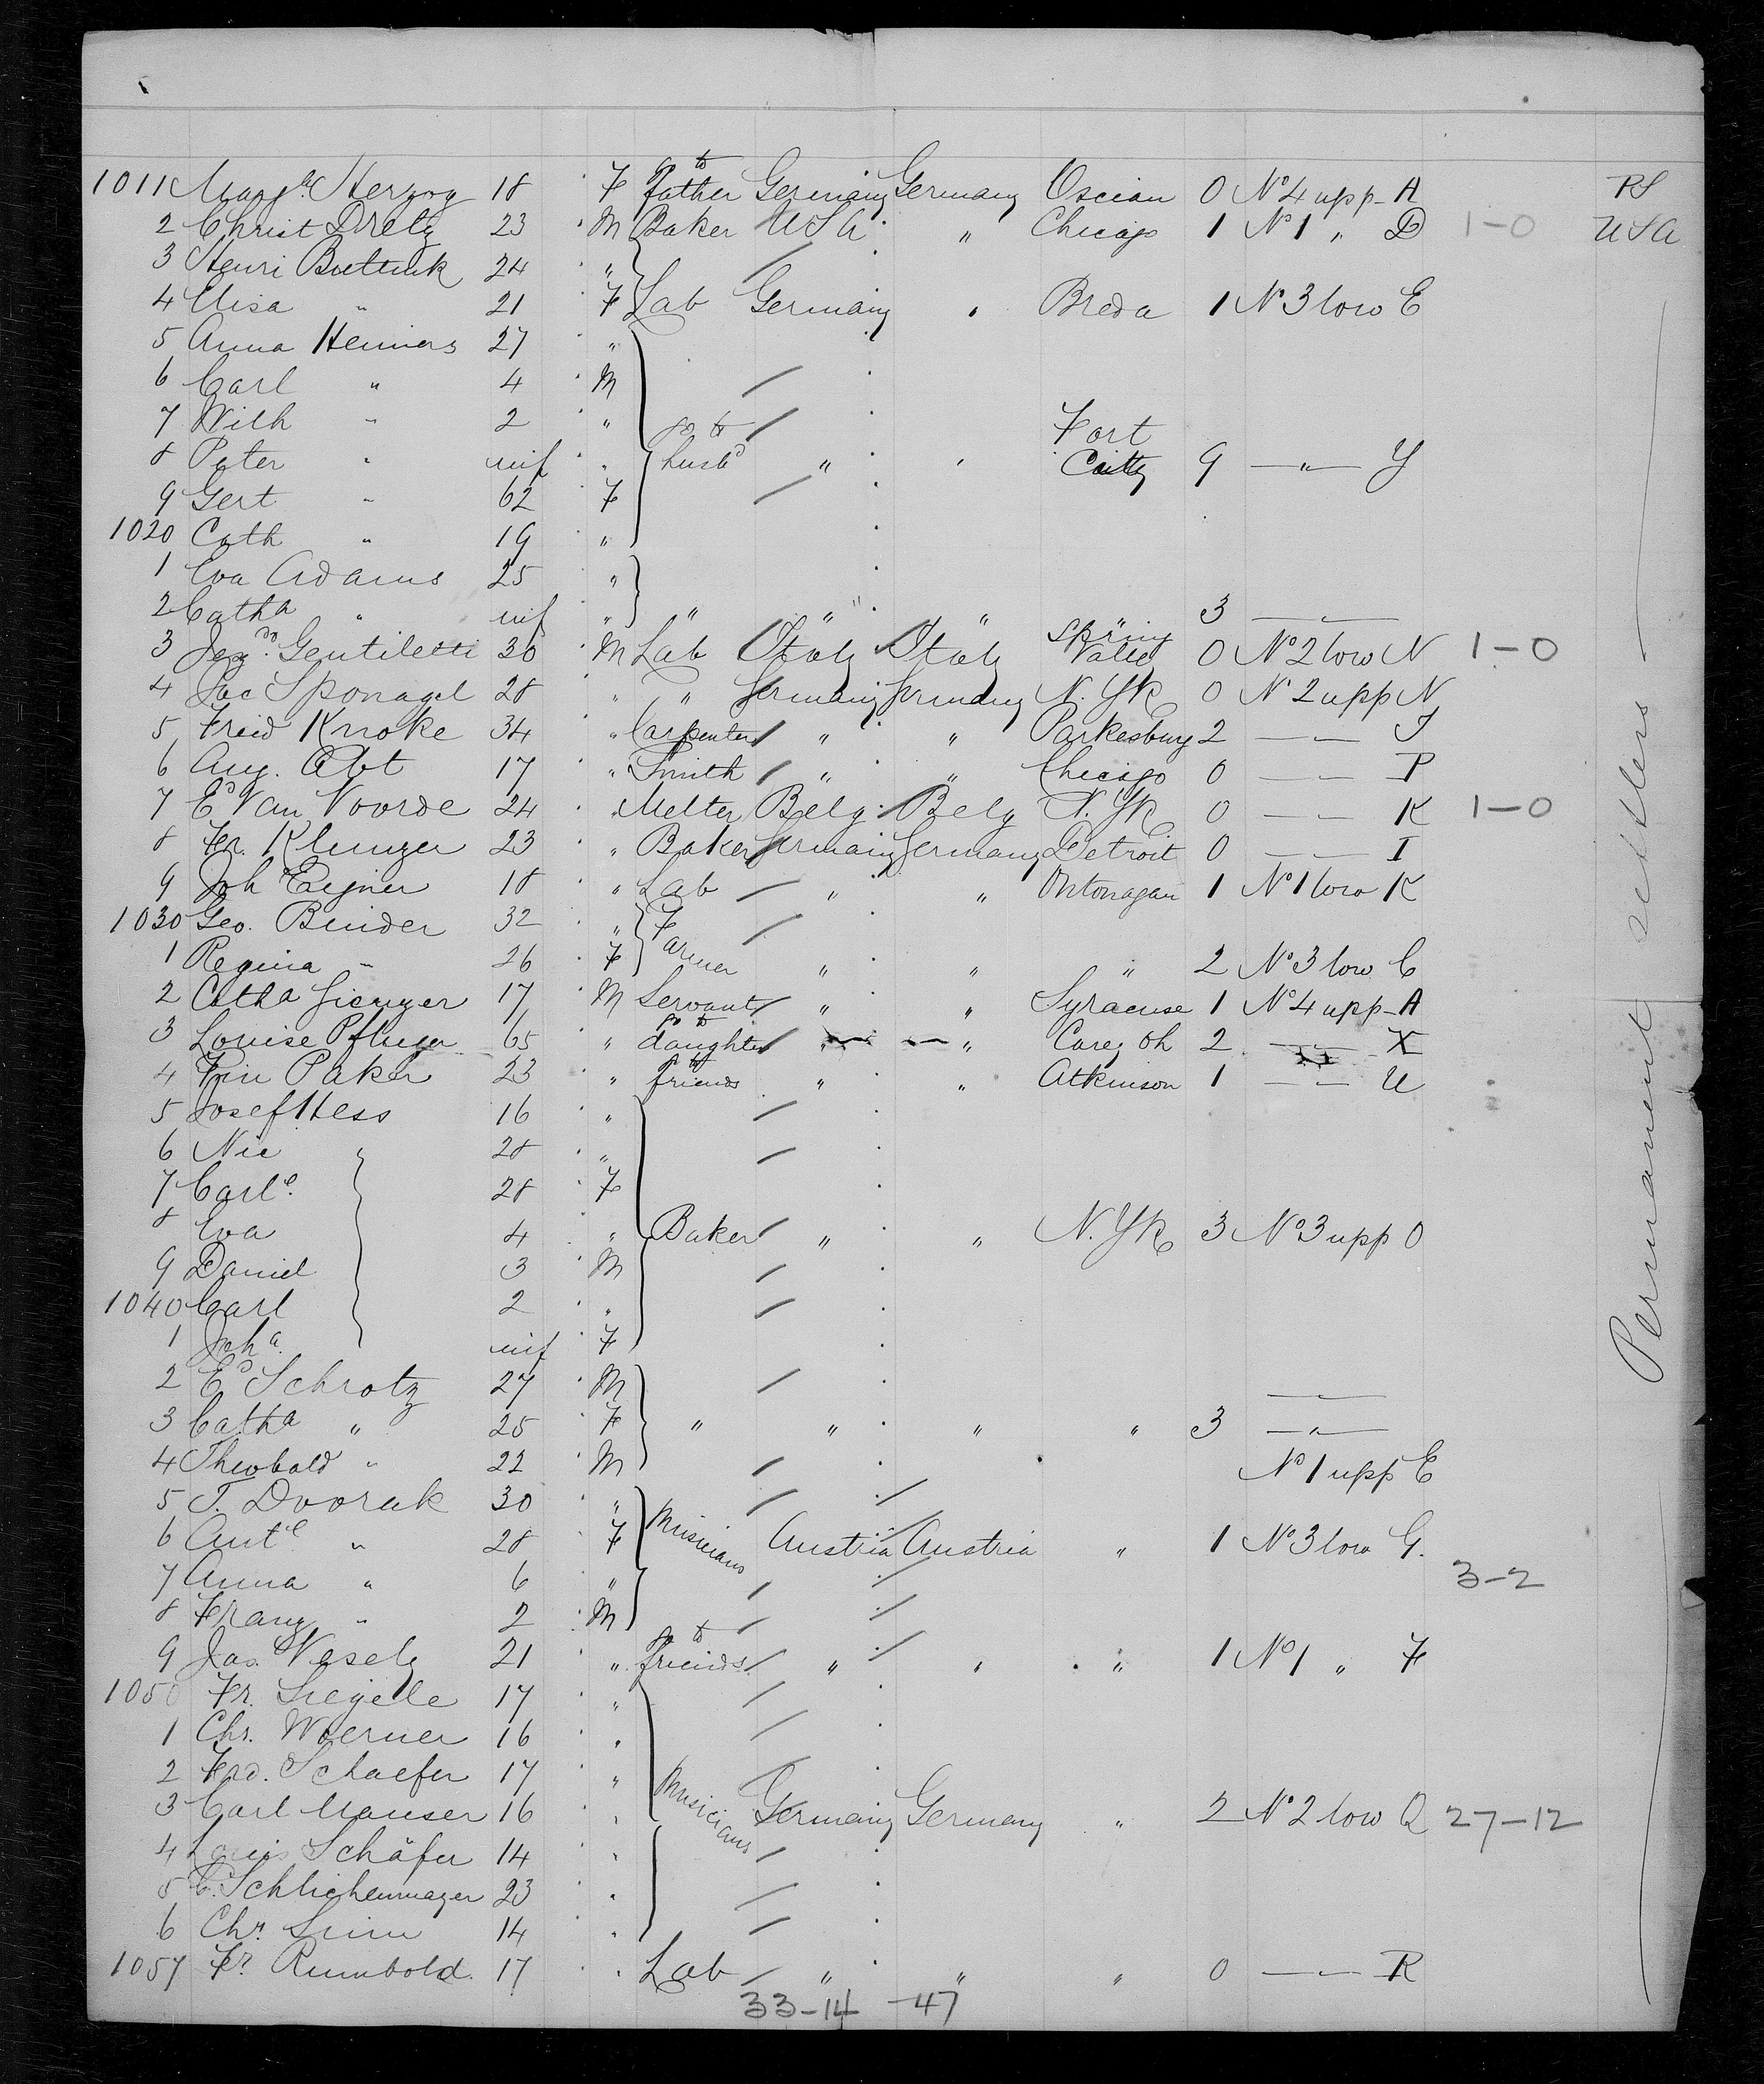 1011 Marg.h Herzog 18 F go to father Germany Germany Oscian 0 No 4 upp - A PS
2 Christ Dretz 23 M Baker USA " Chicago 1 No 1 " D 1-0 USA
3 Henri Buttink 24 "
4 Elisa " 21 F Lab Germany " Breda 1 No 3 low E
5 Anna Heiniers 27 "
6 Carl " 4 M
7 Wilh " 2 "
8 Peter " inf " go to husbd " " Fort Caitty 9 — " — Y
9 Gert " 62 F
1020 Cath " 19 "
1 Eva Adams 25 "
2 Catha " inf " " " " 3 — " —
3 Gentiletti 30 M Lab Italy Italy Spring Valley 0 No 2 low N 1-0
4 Jac Sponagel 28 " " Germany Germany N. Yk 0 No 2 upp N
5 Fried Knoke 34 " Carpenter " " Parkesburg 2 — " — J
6 Aug. Abt 17 " Smith " " Chicago 0 — " — P
7 Ed Van Voorde 24 " Melter Belg Belg N. Yk 0 — " — K 1-0
8 Fr. Klunzer 23 " Baker Germany Germany Detroit 0 — " — I
9 Joh Eegner 18 " Lab " " Ontonagan 1 No 1 low K
1030 Geo. Binder 32 " Farmer
1 Regina " 26 F " " " 2 No 3 low C
2 Catha Gienger 17 M Servant " " Syracuse 1 No 4 upp - A
3 Louise Pfluger 65 " go to daughter " " Carey Oh 2 — " — X
4 Paker 23 " go to friends " " Atkinson 1 — " — U
5 Josef Hess 16 "
6 Nic " 28 "
7 Carle. 28 F
8 Eva 4 " Baker " " N. Yk 3 No 3 upp O
9 Daniel 3 M
1040 Carl 2 "
1 Joha. inf F
2 Ed Schrotz 27 M — " —
3 Catha " 25 F " " " " 3 — " —
4 Theobald " 22 M No 1 upp E
5 T. Dvorak 30 "
6 Ante " 28 F Musicians Austria Austria " 1 No 3 low G.
7 Anna " 6 " 3-2
8 Franz " 2 M
9 Jos. Vesely 21 " go to friends " " " 1 No 1 " F
1050 Fr. Siegele 17 "
1 Chr. Woerner 16 "
2 Frd. Schaefer 17 "
3 Carl Mauser 16 " Musicians Germany Germany " 2 No 2 low Q 27-12
4 Louis Schäfer 14 "
5 C. Schlichenmayer 23 "
6 Chr. Sinn 14 "
1057 Fr. Rumbold. 17 " Lab " " " 0 — " — R
33-14 -47
Permanent settlers